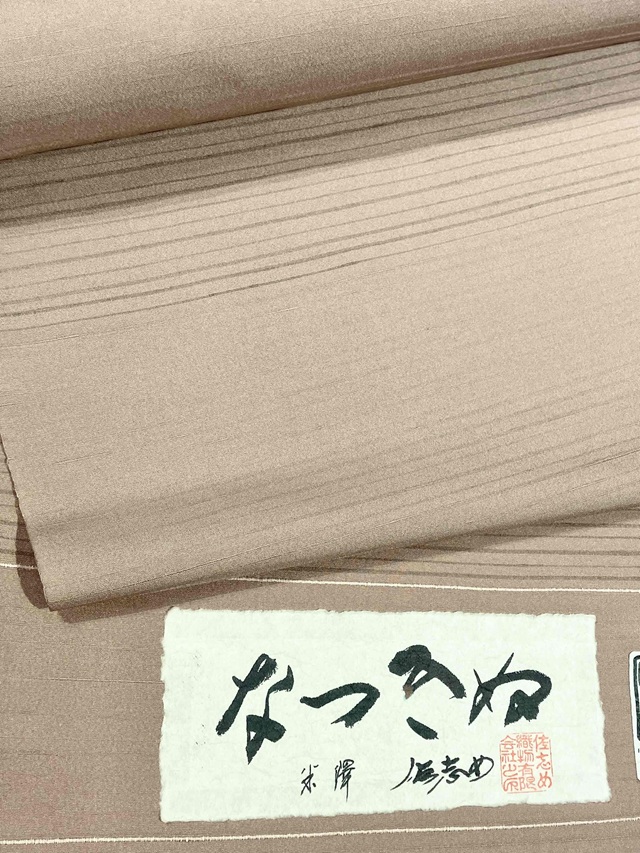 なつきぬ
米澤 佐志め
佐志め
織物有限
会社之印